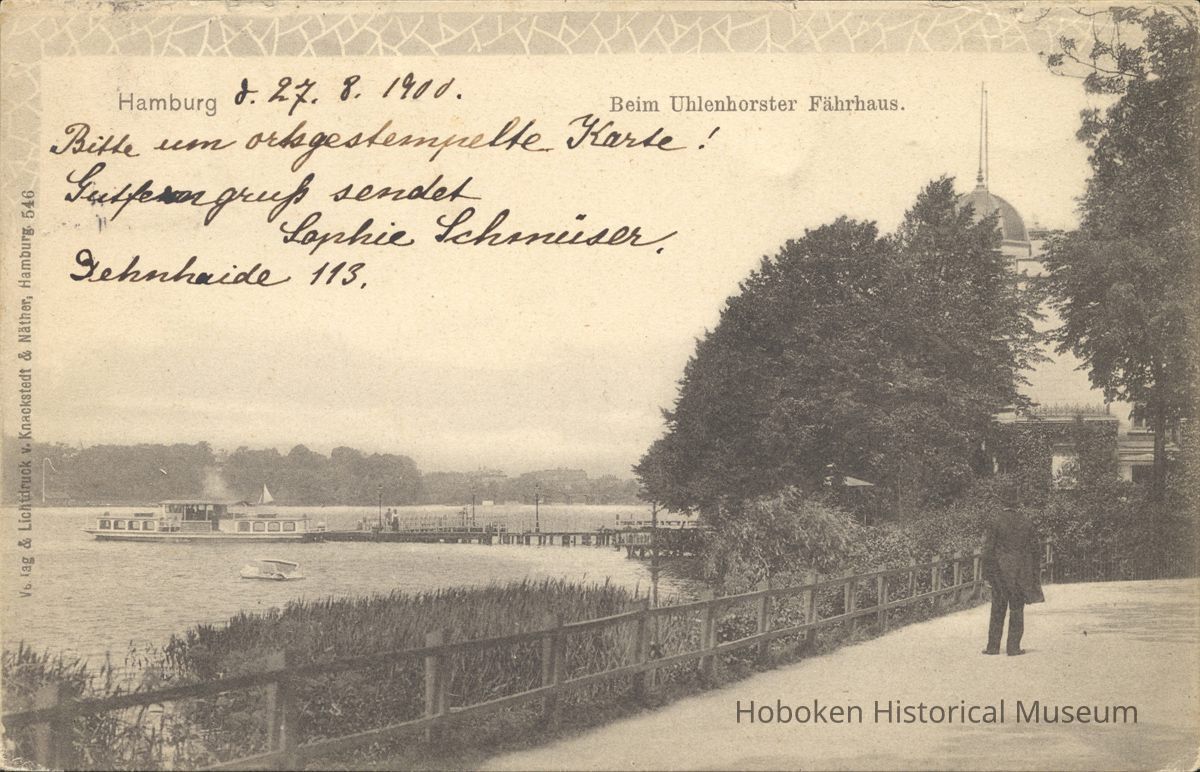 Hamburg d. 27. 8. 1900.
Beim Uhlenhorster Fährhaus.
Bitte um ortsgestempelte Karte!
gruß sendet
Sophie Schmüser.
Dehnhaide 113.
Verlag & Lichtdruck v. Knackstedt & Näther, Hamburg. 546
Hoboken Historical Museum